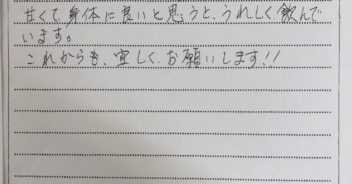 甘くて身体に良いと思うと、うれしく飲んで
います。
これからも、宜しくお願いします!!